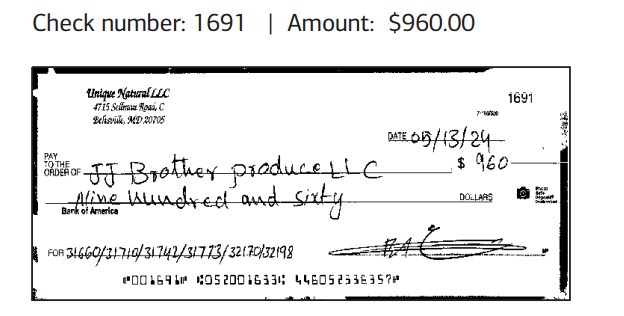 Check number: 1691 | Amount: $960.00
Unique Natural LLC
1691
4715 Sellman Road, C
Beltsville, MD 20705
7-11/520
DATE 05/13/24
PAY
TO THE
ORDER OF JJ Brother produce LLC $ 960
Nine Hundred and sixty DOLLARS
Bank of America
FOR 31660/31710/31742/31773/32170/32198
⑈001691⑈ ⑆052001633⑆ 446052336357⑈